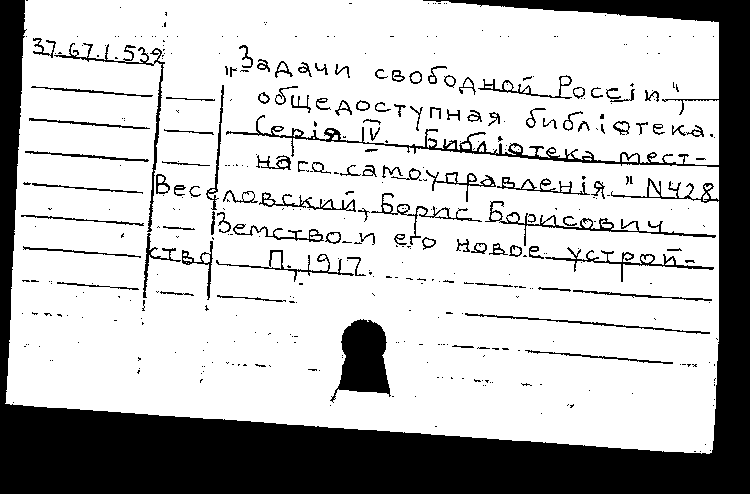 37.67.1.539
„Задачи свободной Россіи",
общедоступная библіотека.
Серія IV. „Библіотека мест-
наго самоуправленія." N428
Веселовский, Борис Борисович
Земство и его новое устрой-
ство П., 1917.